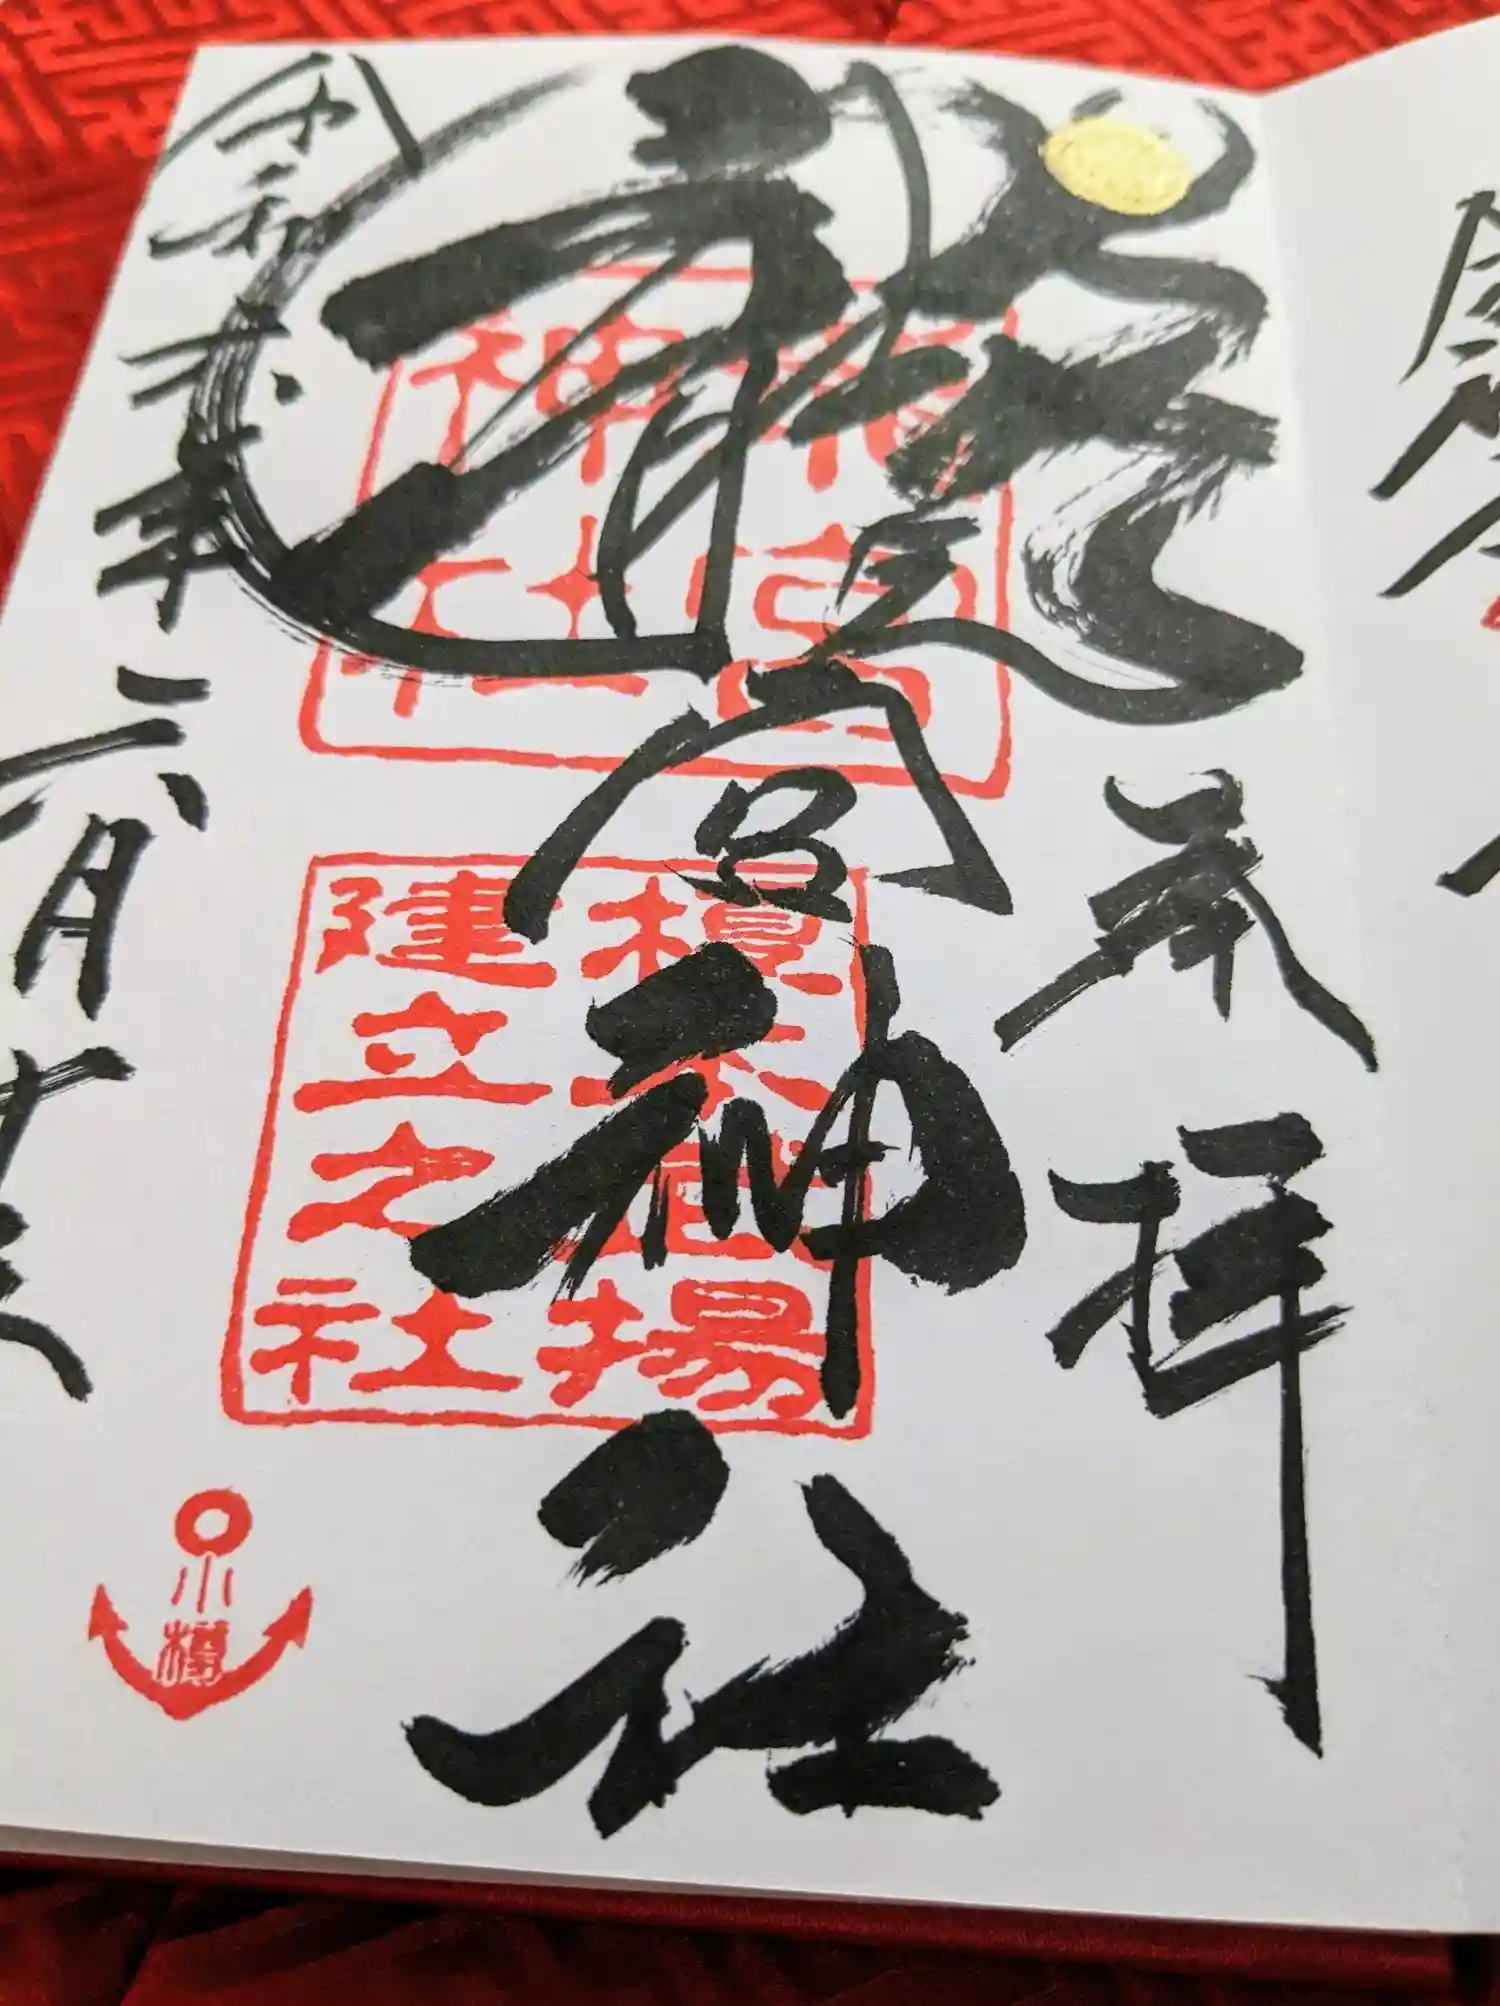 奉拝
龍宮神社
龍宮
神社
榎本武揚
建立之社
令和弐年六月十
小樽